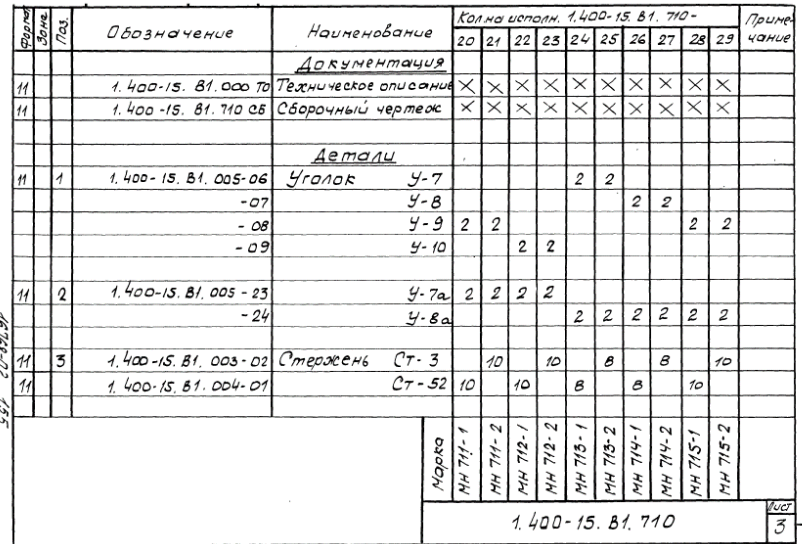 Формат Зона Поз. Обозначение Наименование Кол. на исполн. 1.400-15. В1. 710- Приме-
20 21 22 23 24 25 26 27 28 29 чание
Документация
11 1.400-15. В1.000 ТО Техническое описание X X X X X X X X X X
11 1.400-15. В1.710 СБ Сборочный чертеж X X X X X X X X X X
Детали
11 1 1.400-15. В1. 005-06 Уголок У-7 2 2
-07 У-8 2 2
-08 У-9 2 2 2 2
-09 У-10 2 2
11 2 1.400-15. В1. 005-23 У-7а 2 2 2 2
-24 У-8а 2 2 2 2 2 2
11 3 1.400-15. В1. 003-02 Стержень Ст-3 10 10 8 8 10
11 1.400-15. В1. 004-01 Ст-52 10 10 8 8 10
Марка МН 711-1 МН 711-2 МН 712-1 МН 712-2 МН 713-1 МН 713-2 МН 714-1 МН 714-2 МН 715-1 МН 715-2
1.400-15. В1. 710
Лист
3